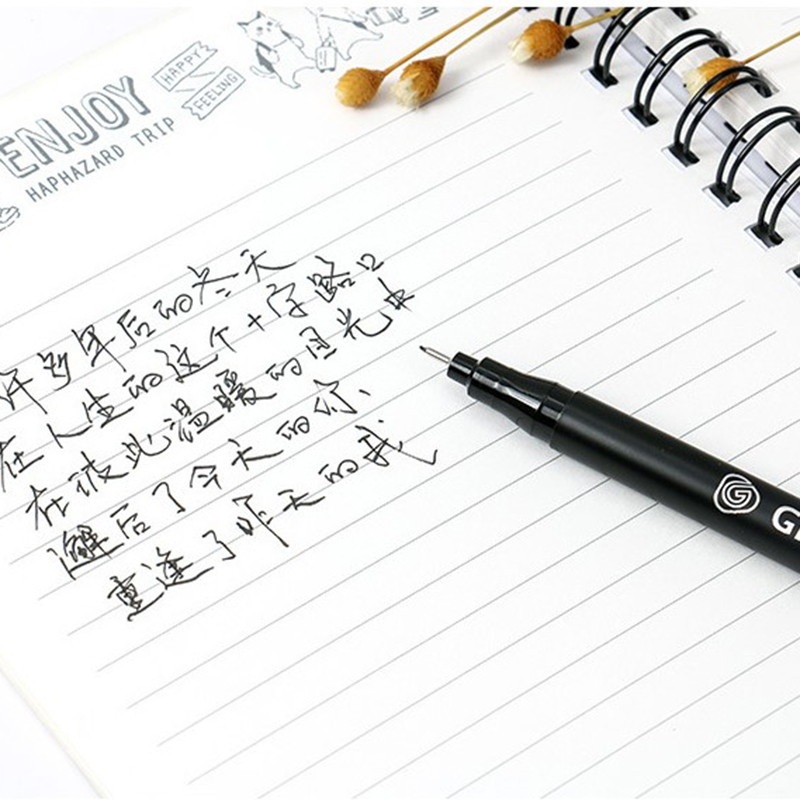 ENJOY
HAPPY
FEELING
HAPHAZARD TRIP
许多年后的冬天
在人生的这个十字路口
在彼此温暖的目光中
邂后了今天的你、
重逢了昨天的我
G